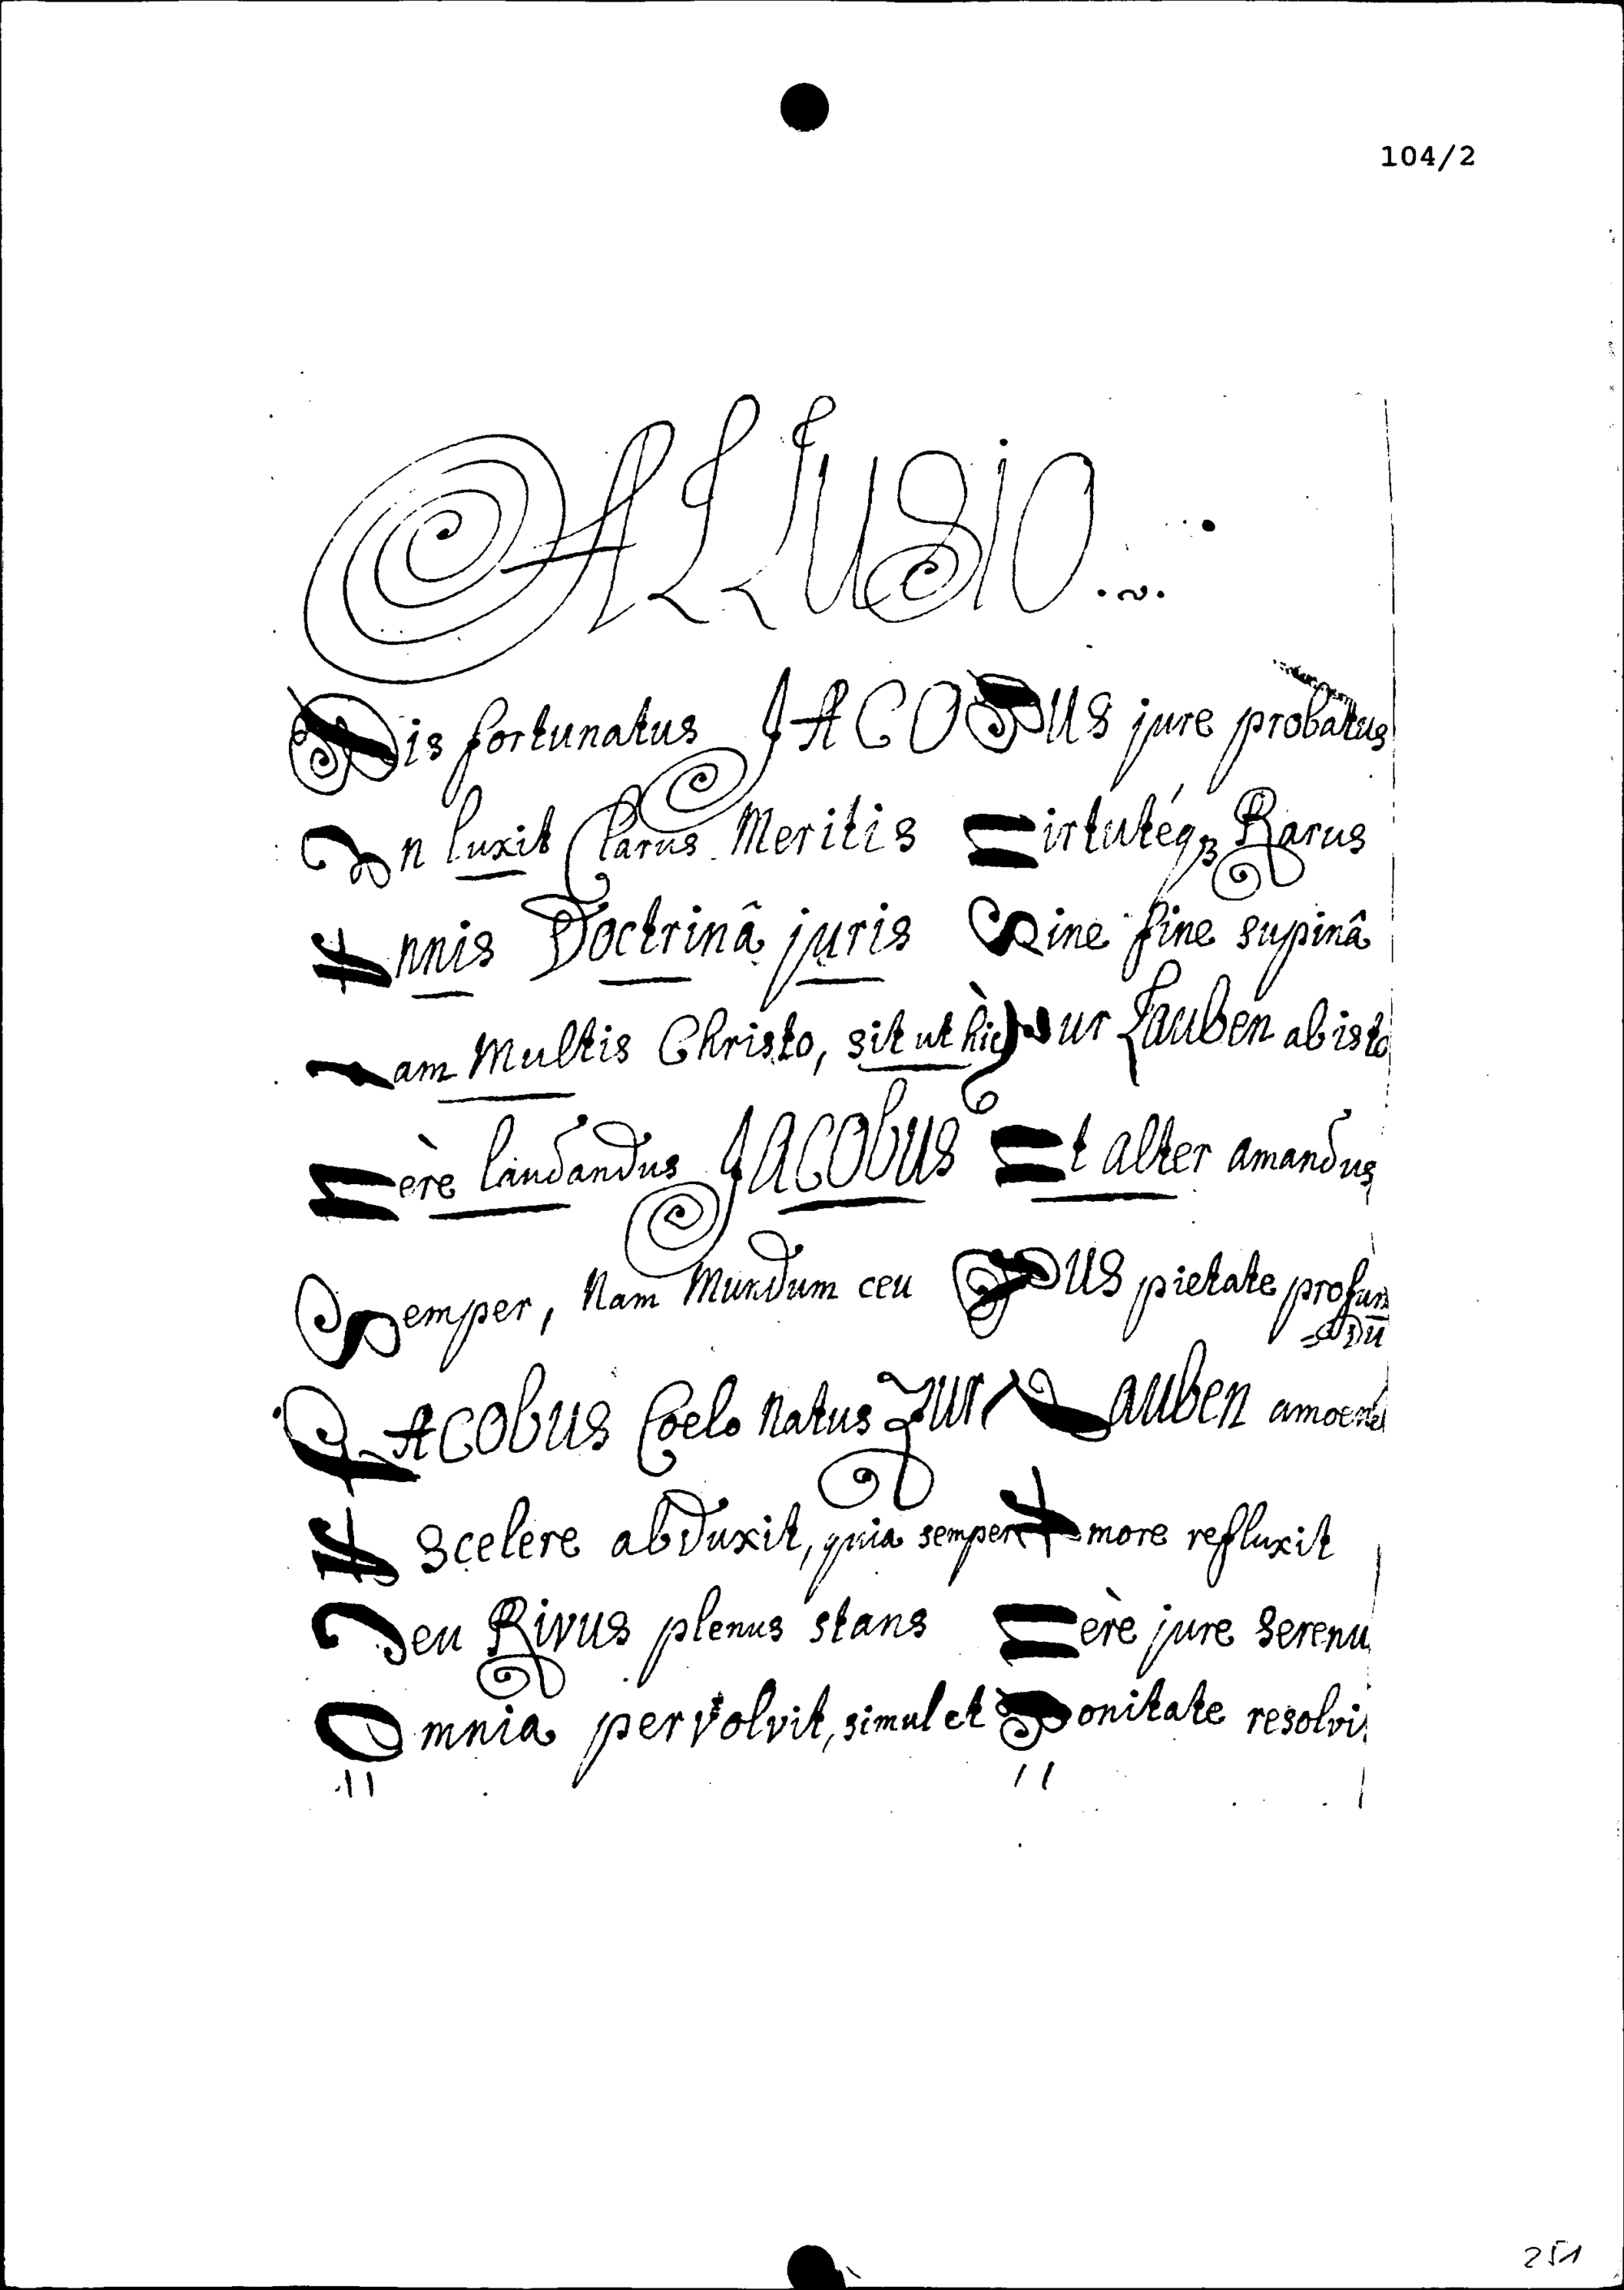 104/2
ALLUSIO
Bis fortunatus JACOBUS jure probatus
In luxit Clarus Meritis Virtutéq3 Rarus
Annis Doctrinâ juris Sine fine supinâ
Nam Multis Christo, sit ut hic Zur Lauben ab isto
Verè laudandus JACOBus Et alter amandus
Semper, Nam Mundum ceu BUS pietate profun=
=dũ
JACObus Coelo Natus Zur Lauben amoenus
A Scelere abduxit, quia semper Amore refluxit
Ceu Rivus plenus stans Verè jure Serenu
Omnia pervolvit, simul et Bonitate resolvi
251